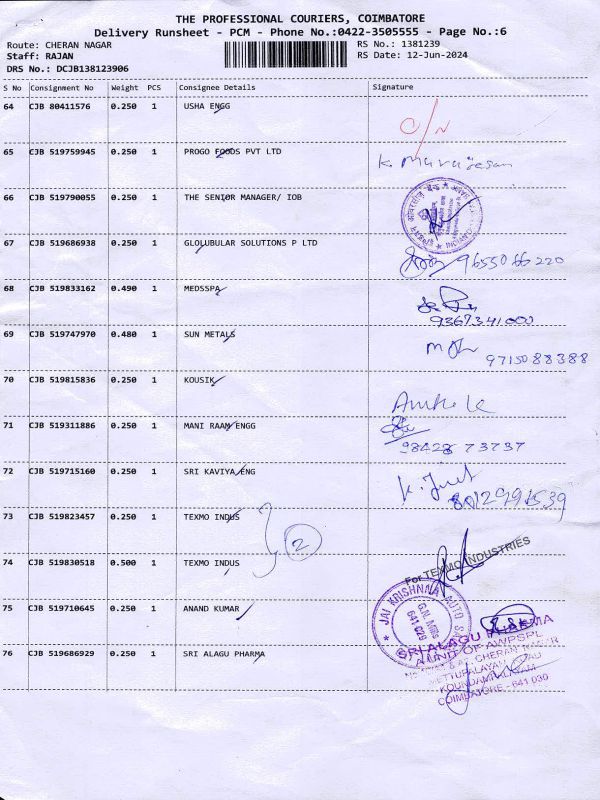 THE PROFESSIONAL COURIERS, COIMBATORE
Delivery Runsheet - PCM - Phone No.:0422-3505555 - Page No.:6
Route: CHERAN NAGAR
RS No.: 1381239
Staff: RAJAN
RS Date: 12-Jun-2024
DRS No.: DCJB138123906
S No Consignment No Weight PCS Consignee Details Signature
64 CJB 80411576 0.250 1 USHA ENGG
65 CJB 519759945 0.250 1 PROGO FOODS PVT LTD
66 CJB 519790055 0.250 1 THE SENIOR MANAGER/ IOB
67 CJB 519686938 0.250 1 GLOLUBULAR SOLUTIONS P LTD
9655066220
68 CJB 519833162 0.490 1 MEDSSPA
9367341000
69 CJB 519747970 0.480 1 SUN METALS
9715088388
70 CJB 519815836 0.250 1 KOUSIK
71 CJB 519311886 0.250 1 MANI RAAM ENGG
98428 73737
72 CJB 519715160 0.250 1 SRI KAVIYA ENG
8012991539
73 CJB 519823457 0.250 1 TEXMO INDUS
2
74 CJB 519830518 0.500 1 TEXMO INDUS
For TEXMO INDUSTRIES
75 CJB 519710645 0.250 1 ANAND KUMAR
JAI KRISHNAA AUTO
G.N. Mills
641 029
76 CJB 519686929 0.250 1 SRI ALAGU PHARMA
SRI ALAGU PHARMA
A UNIT OF AWPSPL
METTUPALAYAM
KOUNDAMPALAYAM
COIMBATORE - 641 030